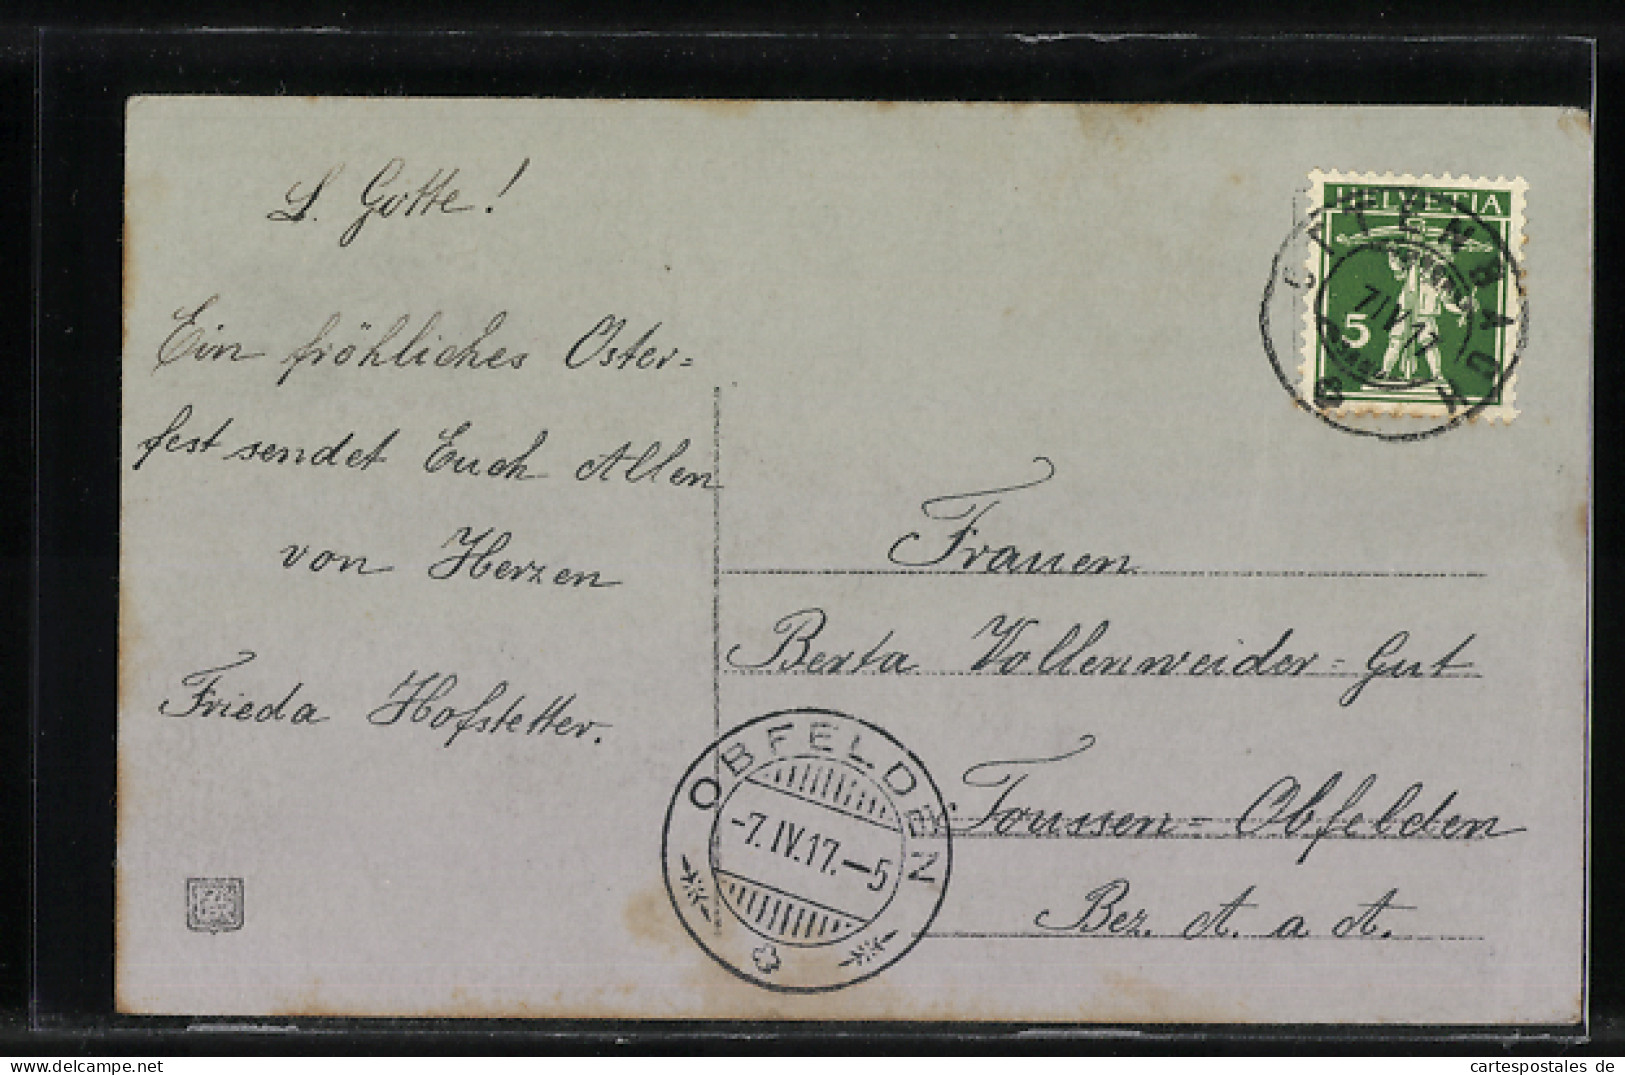 L. Gotte!
Ein fröhliches Oster=
fest sendet Euch Allen
von Herzen
Frieda Hofstetter.
HELVETIA
5
7 IV 17
Frauen
Berta Vollenweider=Gut
Toussen=Obfelden
Bez. A. a A.
OBFELDEN
-7.IV.17.-5
cartespostales de